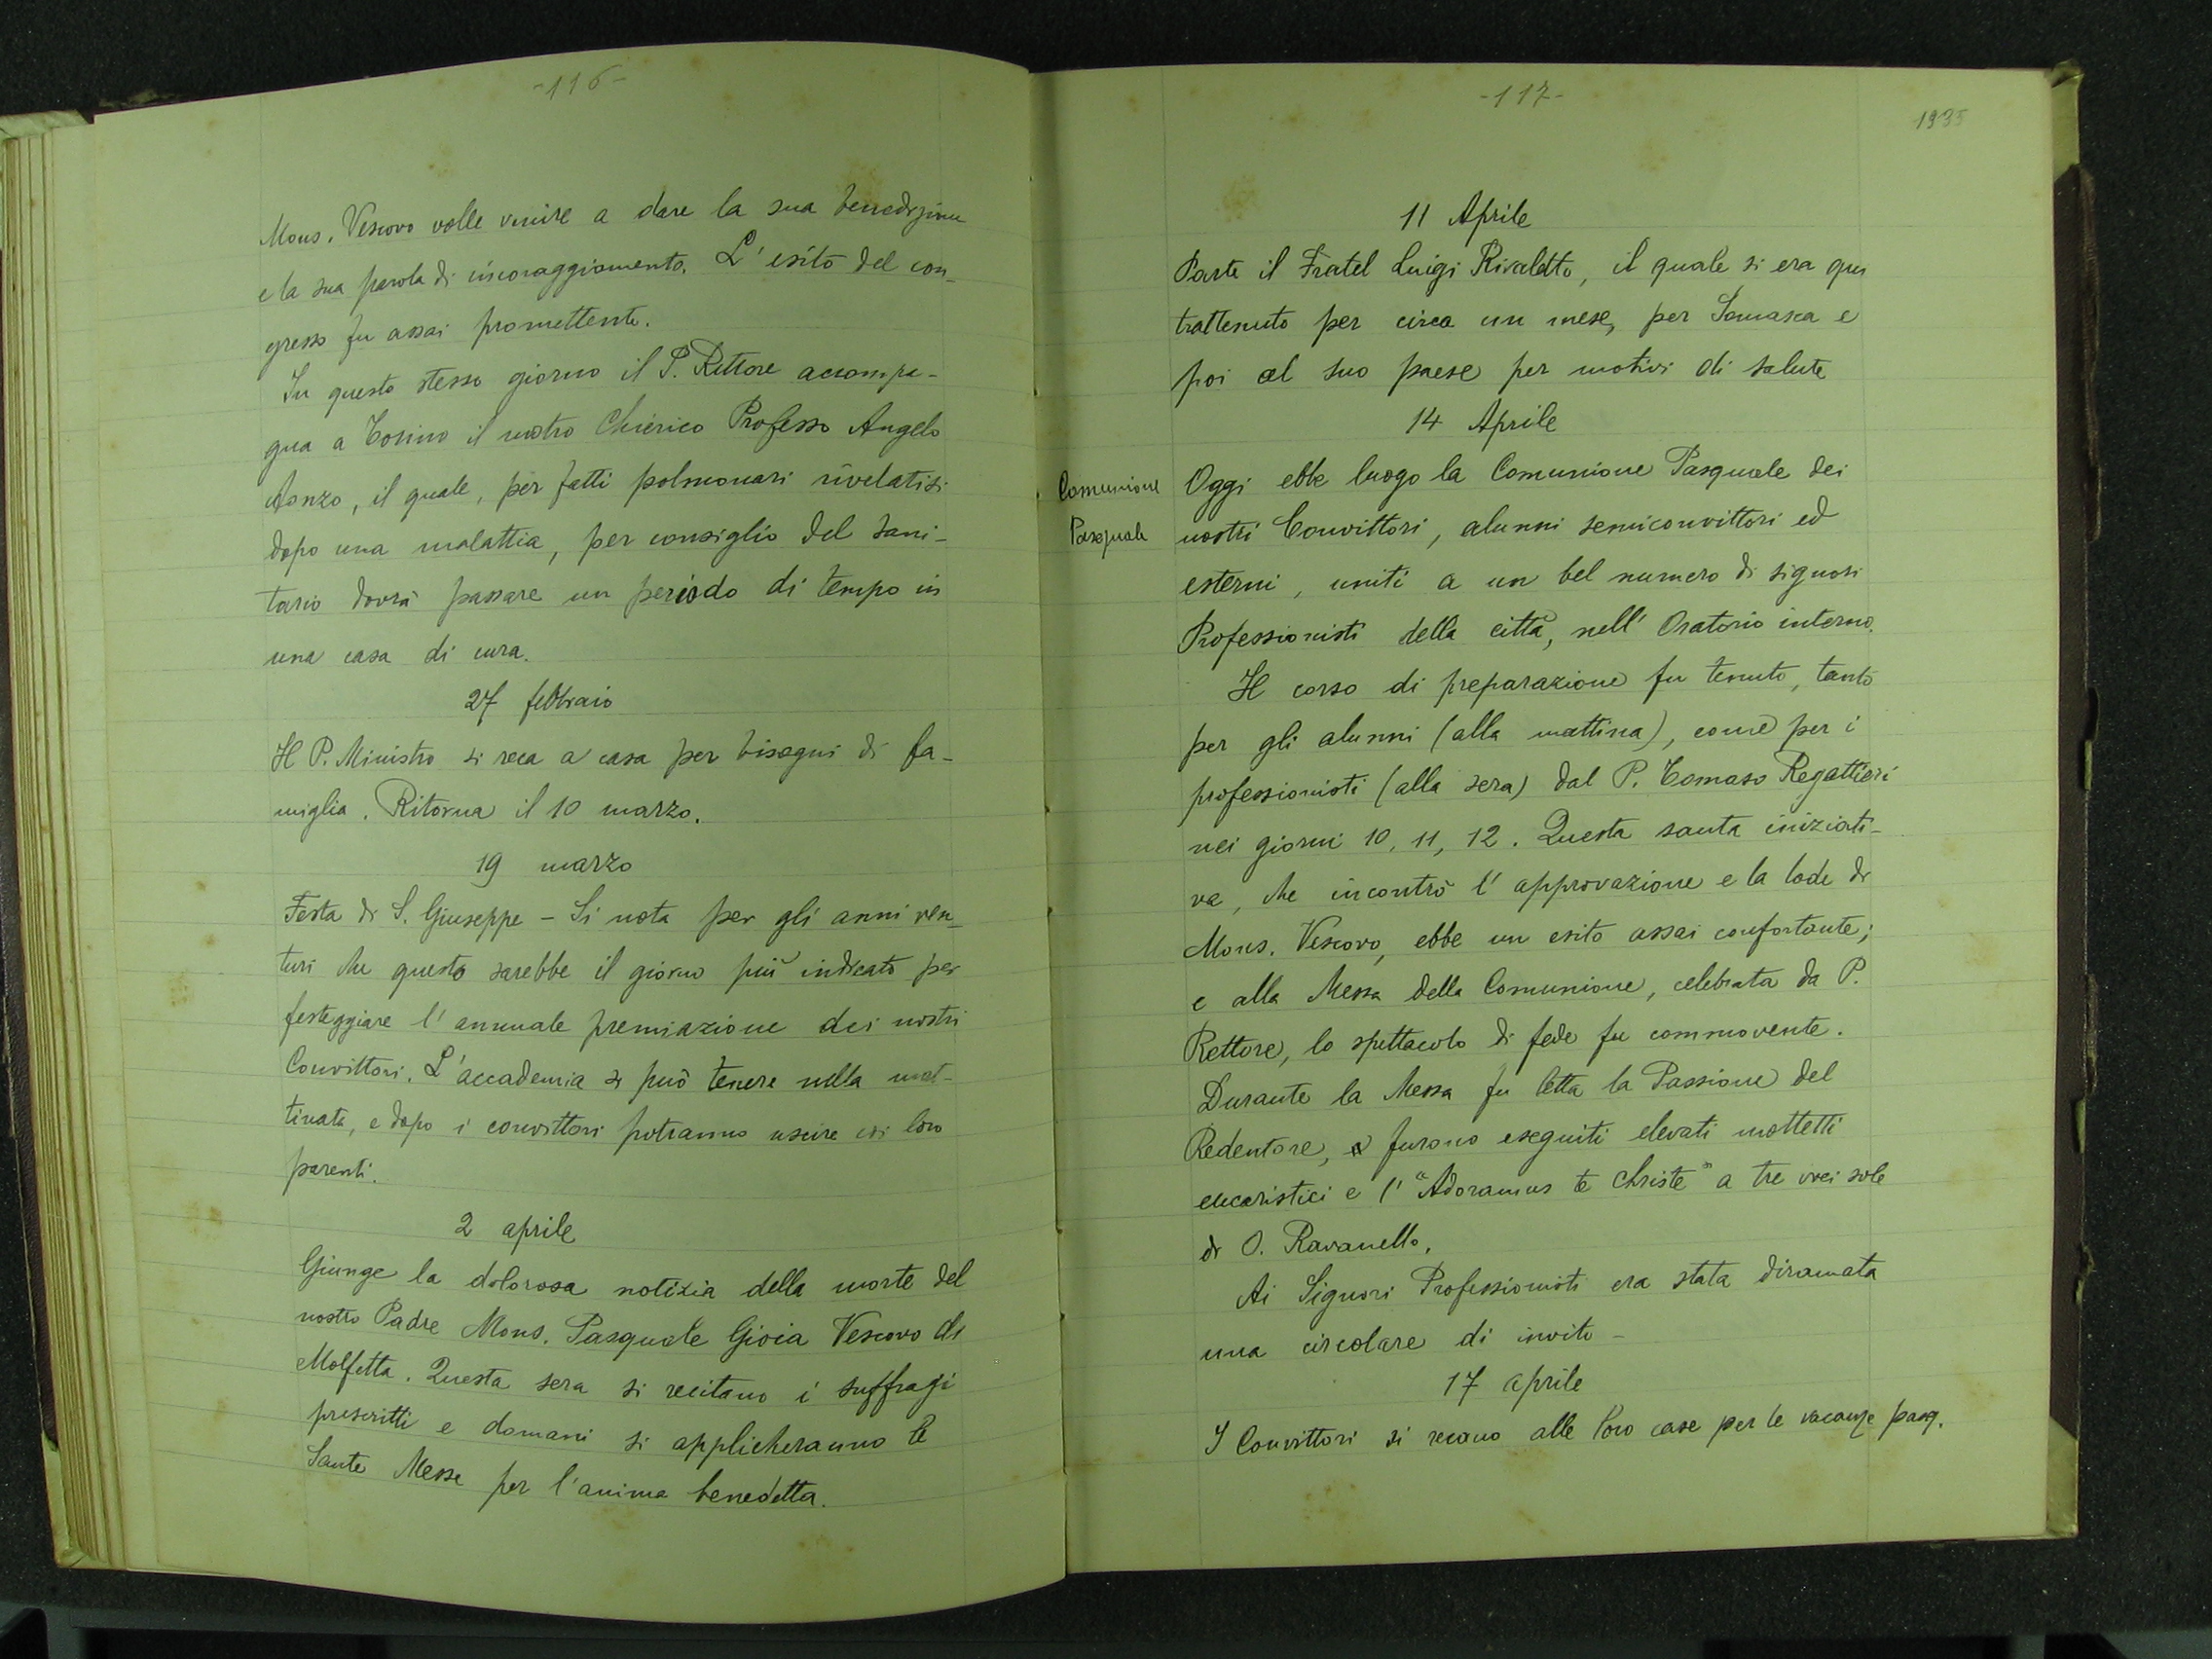 -116-
Mons. Vescovo volle venire a dare la sua benedizione
e la sua parola di incoraggiamento. L'esito del con-
gresso fu assai promettente.
In questo stesso giorno il P. Rettore accompa-
gna a Torino il nostro Chierico Professo Angelo
Aonzo, il quale, per fatti polmonari rivelatisi
dopo una malattia, per consiglio del sani-
tario dovrà passare un periodo di tempo in
una casa di cura.
27 febbraio
Il P. Ministro si reca a casa per bisogni di fa-
miglia. Ritorna il 10 marzo.
19 marzo
Festa di S. Giuseppe - Si nota per gli anni ven-
turi che questo sarebbe il giorno più indicato per
festeggiare l'annuale premiazione dei nostri
Convittori. L'accademia si può tenere nella mat-
tinata, e dopo i convittori potranno uscire coi loro
parenti.
2 aprile
Giunge la dolorosa notizia della morte del
nostro Padre Mons. Pasquale Gioia Vescovo di
Molfetta. Questa sera si recitano i suffragi
prescritti e domani si applicheranno le
Sante Messe per l'anima benedetta.
-117-
1935
11 Aprile
Parte il Fratel Luigi Rivaletto, il quale si era qui
trattenuto per circa un mese, per Somasca e
poi al suo paese per motivi di salute
14 Aprile
Comunione
Pasquale
Oggi ebbe luogo la Comunione Pasquale dei
nostri Convittori, alunni semiconvittori ed
esterni, uniti a un bel numero di signori
Professionisti della città, nell'Oratorio interno.
Il corso di preparazione fu tenuto, tanto
per gli alunni (alla mattina), come per i
professionisti (alla sera) dal P. Tomaso Regattieri
nei giorni 10, 11, 12. Questa santa iniziati-
va, che incontrò l'approvazione e la lode di
Mons. Vescovo, ebbe un esito assai confortante;
e alla Messa della Comunione, celebrata da P.
Rettore, lo spettacolo di fede fu commovente.
Durante la Messa fu letta la Passione del
Redentore, e furono eseguiti elevati mottetti
eucaristici e l'"Adoramus te Christe" a tre voci sole
di O. Ravanello.
Ai Signori Professionisti era stata diramata
una circolare di invito -
17 aprile
I Convittori si recano alle loro case per le vacanze pasq.